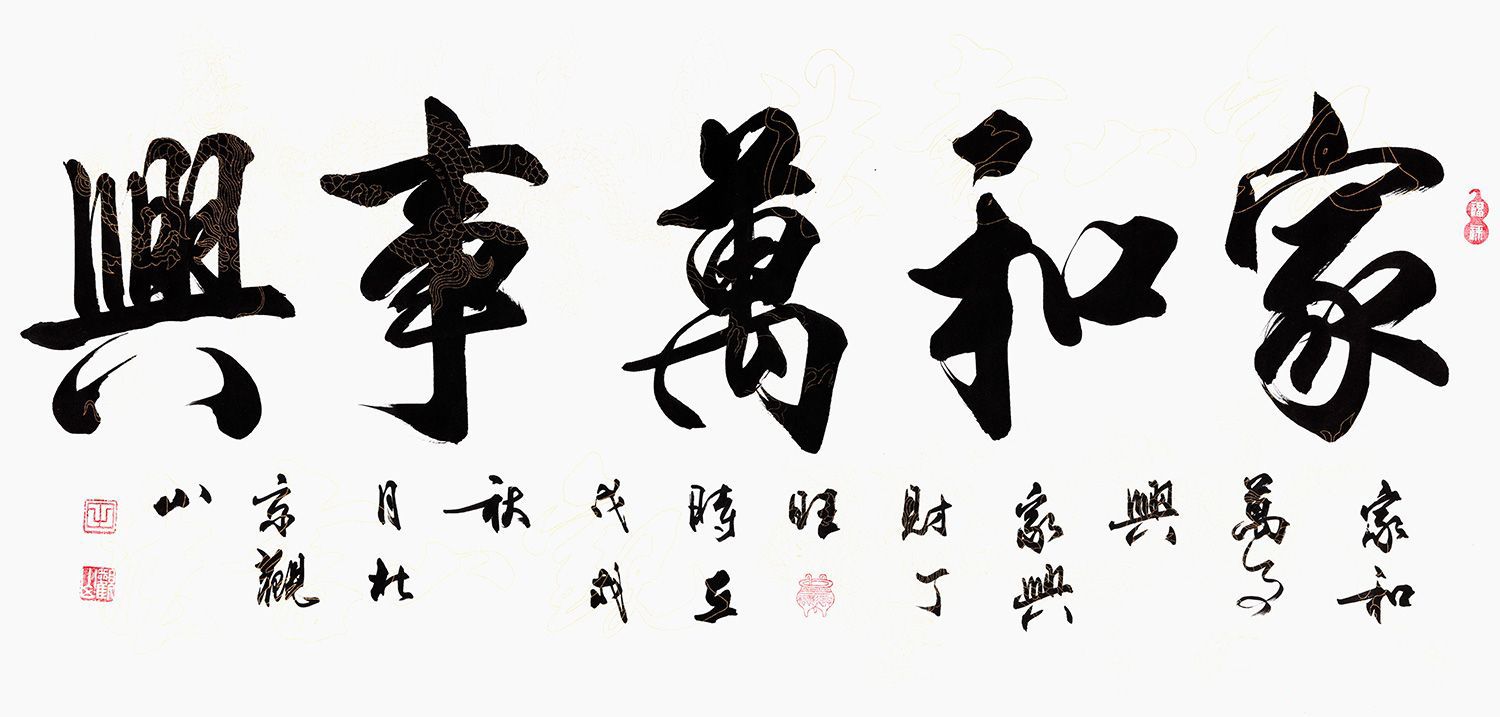 家和萬事興
家和
萬事
興
家興
財丁
旺
時在
戊戌
秋
月北
京觀
山
福祿